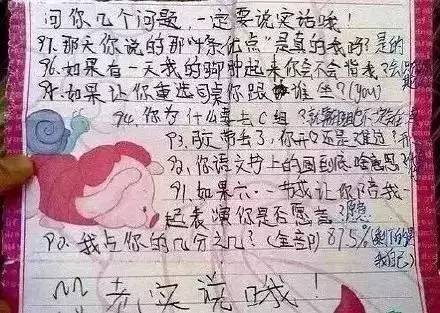 问你几个问题，一定要说实话哦！
97.那天你说的那"十条优点"是真的我吗？是的
96.如果有一天我的脚肿起来你会不会背我？会
95.如果让你重选同桌你跟谁坐？(you)
94.你为什么要去C组？
93.我走了，你开心还是难过？
92.你语文书上的圆到底啥意思
91.如果六·一节我让你陪我
起表演你是否愿意？愿意
90.我占你的几分之几？(全部) 87.5%剩下的是
我自己)
老实说哦！